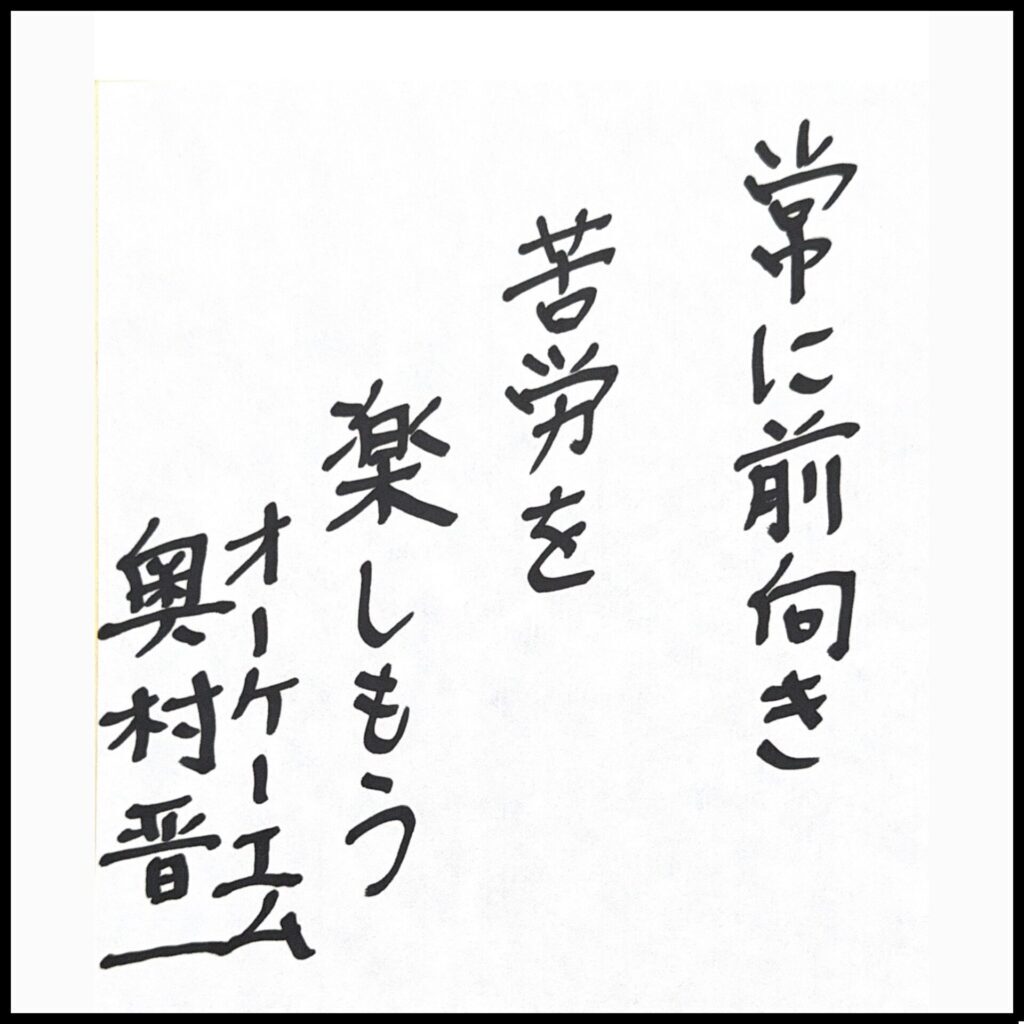 常に前向き
苦労を
楽しもう
オーケーエム
奥村晋一